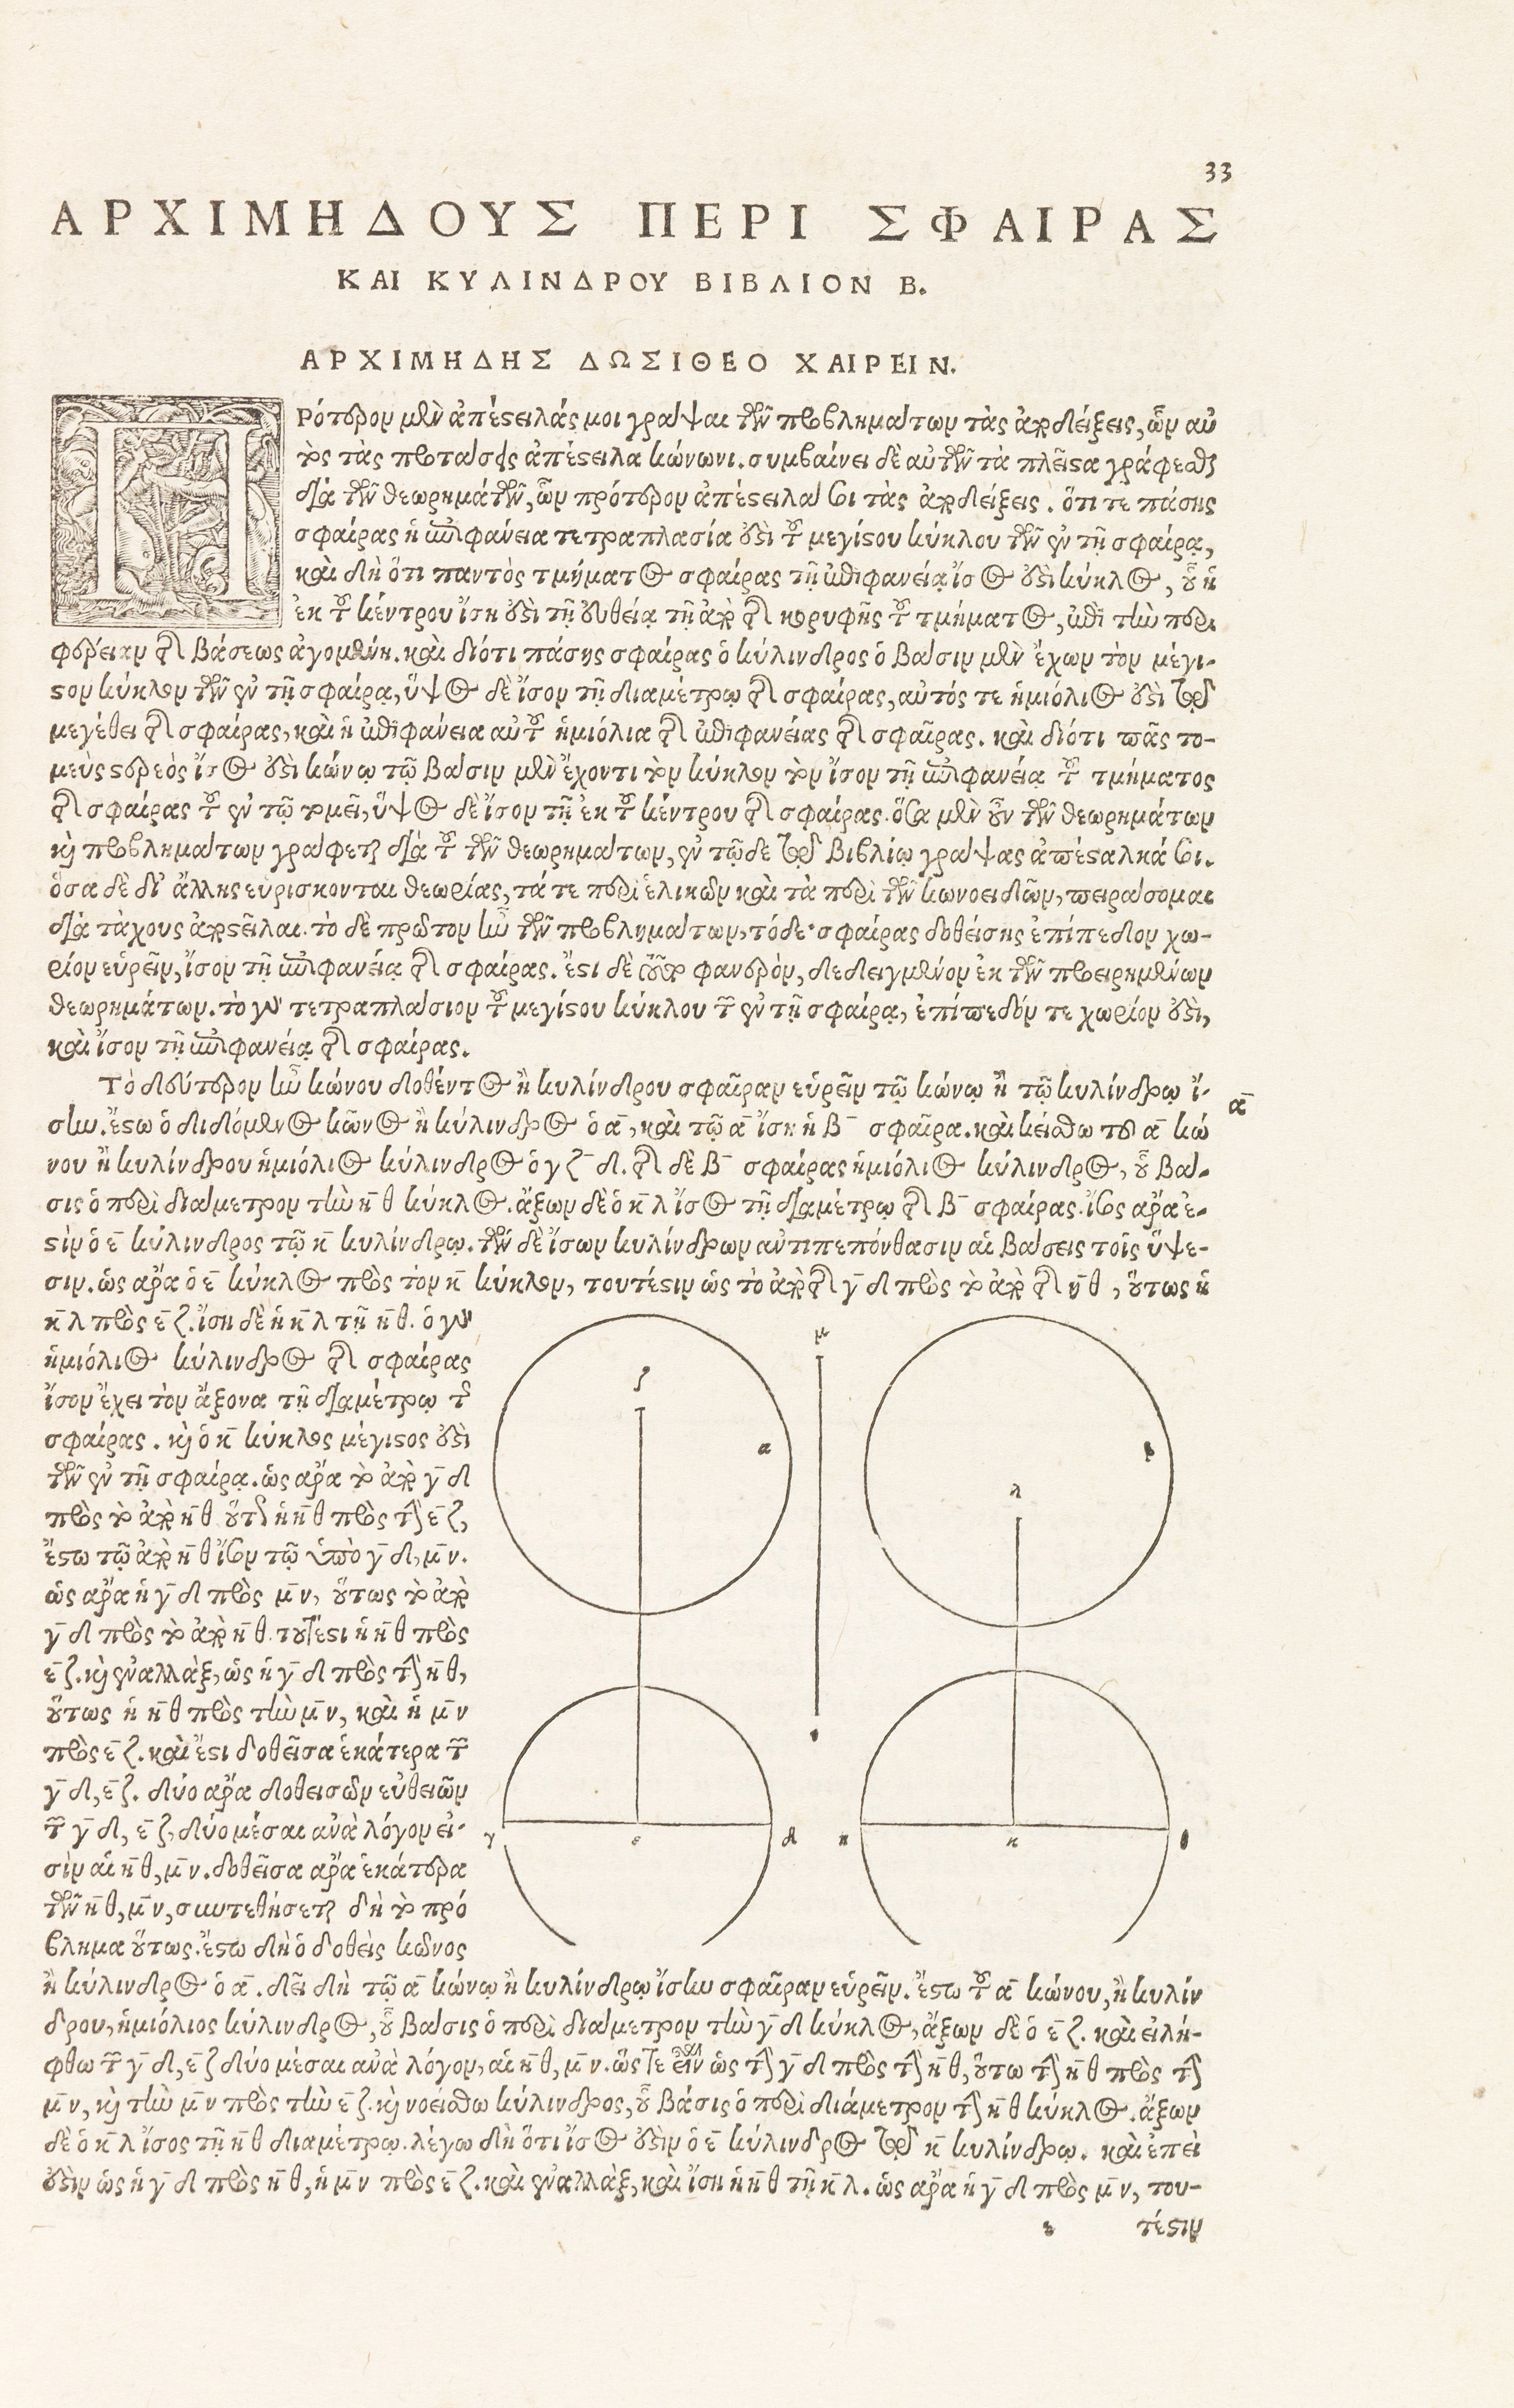 33
ΑΡΧΙΜΗΔΟΥΣ ΠΕΡΙ ΣΦΑΙΡΑΣ
ΚΑΙ ΚΥΛΙΝΔΡΟΥ ΒΙΒΛΙΟΝ Β.
ΑΡΧΙΜΗΔΗΣ ΔΩΣΙΘΕΟ ΧΑΙΡΕΙΝ.
ΠΡότερον μὲν ἀπέστειλάς μοι γράψαι τῶν προβλημάτων τὰς ἀποδείξεις, ὧν αὐ
τὸς τὰς προτάσεις ἀπέστειλα κώνωνι. συμβαίνει δὲ αὐτῶν τὰ πλεῖστα γράφεσθαι
διὰ τῶν θεωρημάτων, ὧν πρότερον ἀπέστειλά σοι τὰς ἀποδείξεις. ὅτι τε πάσης
σφαίρας ἡ ἐπιφάνεια τετραπλασία ἐστὶ τοῦ μεγίστου κύκλου τῶν ἐν τῇ σφαίρᾳ,
καὶ δὴ ὅτι παντὸς τμήματος σφαίρας τῇ ἐπιφανείᾳ ἴσος ἐστὶ κύκλος, οὗ ἡ
ἐκ τοῦ κέντρου ἴση ἐστὶ τῇ εὐθείᾳ τῇ ἀπὸ τῆς κορυφῆς τοῦ τμήματος, ἐπὶ τὴν περι
φέρειαν τῆς βάσεως ἀγομένη. καὶ διότι πάσης σφαίρας ὁ κύλινδρος ὁ βάσιν μὲν ἔχων τὸν μέγι-
στον κύκλον τῶν ἐν τῇ σφαίρᾳ, ὕψος δὲ ἴσον τῇ διαμέτρῳ τῆς σφαίρας, αὐτός τε ἡμιόλιος ἐστὶ τῷ
μεγέθει τῆς σφαίρας, καὶ ἡ ἐπιφάνεια αὐτοῦ ἡμιόλια τῆς ἐπιφανείας τῆς σφαῖρας. καὶ διότι πᾶς το-
μεὺς στερεὸς ἴσος ἐστὶ κώνῳ τῷ βάσιν μὲν ἔχοντι τὸν κύκλον τὸν ἴσον τῇ ἐπιφανείᾳ τοῦ τμήματος
τῆς σφαίρας τοῦ ἐν τῷ τομεῖ, ὕψος δὲ ἴσον τῇ ἐκ τοῦ κέντρου τῆς σφαίρας. ὅσα μὲν οὖν τῶν θεωρημάτων
καὶ προβλημάτων γράφεται διὰ τοῦ τῶν θεωρημάτων, ἐν τῷδε τῷ βιβλίῳ γράψας ἀπέσταλκά σοι.
ὅσα δὲ δι' ἄλλης εὑρίσκονται θεωρίας, τά τε περὶ ἑλικῶν καὶ τὰ περὶ τῶν κωνοειδῶν, πειράσομαι
διὰ τάχους ἀποστεῖλαι. τὸ δὲ πρῶτον ἦν τῶν προβλημάτων, τόδε· σφαίρας δοθείσης ἐπίπεδον χω-
ρίον εὑρεῖν, ἴσον τῇ ἐπιφανείᾳ τῆς σφαίρας. ἔστι δὲ τοῦτο φανερὸν, δεδειγμένον ἐκ τῶν προειρημένων
θεωρημάτων. τὸ γὰρ τετραπλάσιον τοῦ μεγίστου κύκλου τῶν ἐν τῇ σφαίρᾳ, ἐπίπεδόν τε χωρίον ἐστὶ,
καὶ ἴσον τῇ ἐπιφανείᾳ τῆς σφαίρας.
Τὸ δεύτερον ἦν κώνου δοθέντος ἢ κυλίνδρου σφαῖραν εὑρεῖν τῷ κώνῳ ἢ τῷ κυλίνδρῳ ἴ-
α̅
σην. ἔστω ὁ διδόμενος κῶνος ἢ κύλινδρος ὁ α̅, καὶ τῷ α̅ ἴση ἡ β̅ σφαῖρα. καὶ κείσθω τοῦ α̅ κώ
νου ἢ κυλίνδρου ἡμιόλιος κύλινδρος ὁ γ ζ̅ δ. τῆς δὲ β̅ σφαίρας ἡμιόλιος κύλινδρος, οὗ βά-
σις ὁ περὶ διάμετρον τὴν η̅ θ κύκλος. ἄξων δὲ ὁ κ̅ λ ἴσος τῇ διαμέτρῳ τῆς β̅ σφαίρας. ἴσος ἄρα ἐ-
στὶν ὁ ε̅ κύλινδρος τῷ κ̅ κυλίνδρῳ. τῶν δὲ ἴσων κυλίνδρων ἀντιπεπόνθασιν αἱ βάσεις τοῖς ὕψε-
σιν. ὡς ἄρα ὁ ε̅ κύκλος πρὸς τὸν κ̅ κύκλον, τουτέστιν ὡς τὸ ἀπὸ τῆς γ̅ δ πρὸς τὸ ἀπὸ τῆς η̅ θ, οὕτως ἡ
κ̅ λ πρὸς ε̅ ζ. ἴση δὲ ἡ κ̅ λ τῇ η̅ θ. ὁ γὰρ
ἡμιόλιος κύλινδρος τῆς σφαίρας
ἴσον ἔχει τὸν ἄξονα τῇ διαμέτρῳ τῆς
σφαίρας. καὶ ὁ κ̅ κύκλος μέγιστος ἐστὶ
τῶν ἐν τῇ σφαίρᾳ. ὡς ἄρα τὸ ἀπὸ γ̅ δ
πρὸς τὸ ἀπὸ η̅ θ οὕτως ἡ η̅ θ πρὸς τὴν ε̅ ζ,
ἔστω τῷ ἀπὸ η̅ θ ἴσον τῷ ὑπὸ γ̅ δ, μ̅ ν.
ὡς ἄρα ἡ γ̅ δ πρὸς μ̅ ν, οὕτως τὸ ἀπὸ
γ̅ δ πρὸς τὸ ἀπὸ η̅ θ. τουτέστι ἡ η̅ θ πρὸς
ε̅ ζ. καὶ ἐναλλὰξ, ὡς ἡ γ̅ δ πρὸς τὴν η̅ θ,
οὕτως ἡ η̅ θ πρὸς τὴν μ̅ ν, καὶ ἡ μ̅ ν
πρὸς ε̅ ζ. καὶ ἔστι δοθεῖσα ἑκάτερα τῶν
γ̅ δ, ε̅ ζ. δύο ἄρα δοθεισῶν εὐθειῶν
τῶν γ̅ δ, ε̅ ζ, δύο μέσαι ἀνὰ λόγον εἰ-
σὶν αἱ η̅ θ, μ̅ ν. δοθεῖσα ἄρα ἑκάτερα
τῶν η̅ θ, μ̅ ν, συντεθήσεται δὴ τὸ πρό
βλημα οὕτως. ἔστω δὴ ὁ δοθεὶς κῶνος
ζ μ α β λ
ν γ ε δ η κ θ
ἢ κύλινδρος ὁ α̅. δεῖ δὴ τῷ α̅ κώνῳ ἢ κυλίνδρῳ ἴσην σφαῖραν εὑρεῖν. ἔστω τοῦ α̅ κώνου, ἢ κυλίν
δρου, ἡμιόλιος κύλινδρος, οὗ βάσις ὁ περὶ διάμετρον τὴν γ̅ δ κύκλος, ἄξων δὲ ὁ ε̅ ζ. καὶ εἰλή-
φθω τῶν γ̅ δ, ε̅ ζ δύο μέσαι ἀνὰ λόγον, αἱ η̅ θ, μ̅ ν. ὥστε εἶναι ὡς τὴν γ̅ δ πρὸς τὴν η̅ θ, οὕτω τὴν η̅ θ πρὸς τὴν
μ̅ ν, καὶ τὴν μ̅ ν πρὸς τὴν ε̅ ζ. καὶ νοείσθω κύλινδρος, οὗ βάσις ὁ περὶ διάμετρον τὴν η̅ θ κύκλος. ἄξων
δὲ ὁ κ̅ λ ἴσος τῇ η̅ θ διαμέτρῳ. λέγω δὴ ὅτι ἴσος ἐστὶν ὁ ε̅ κύλινδρος τῷ κ̅ κυλίνδρῳ. καὶ ἐπεὶ
ἐστὶν ὡς ἡ γ̅ δ πρὸς η̅ θ, ἡ μ̅ ν πρὸς ε̅ ζ. καὶ ἐναλλὰξ, καὶ ἴση ἡ η̅ θ τῇ κ̅ λ. ὡς ἄρα ἡ γ̅ δ πρὸς μ̅ ν, του-
ε τέστιν